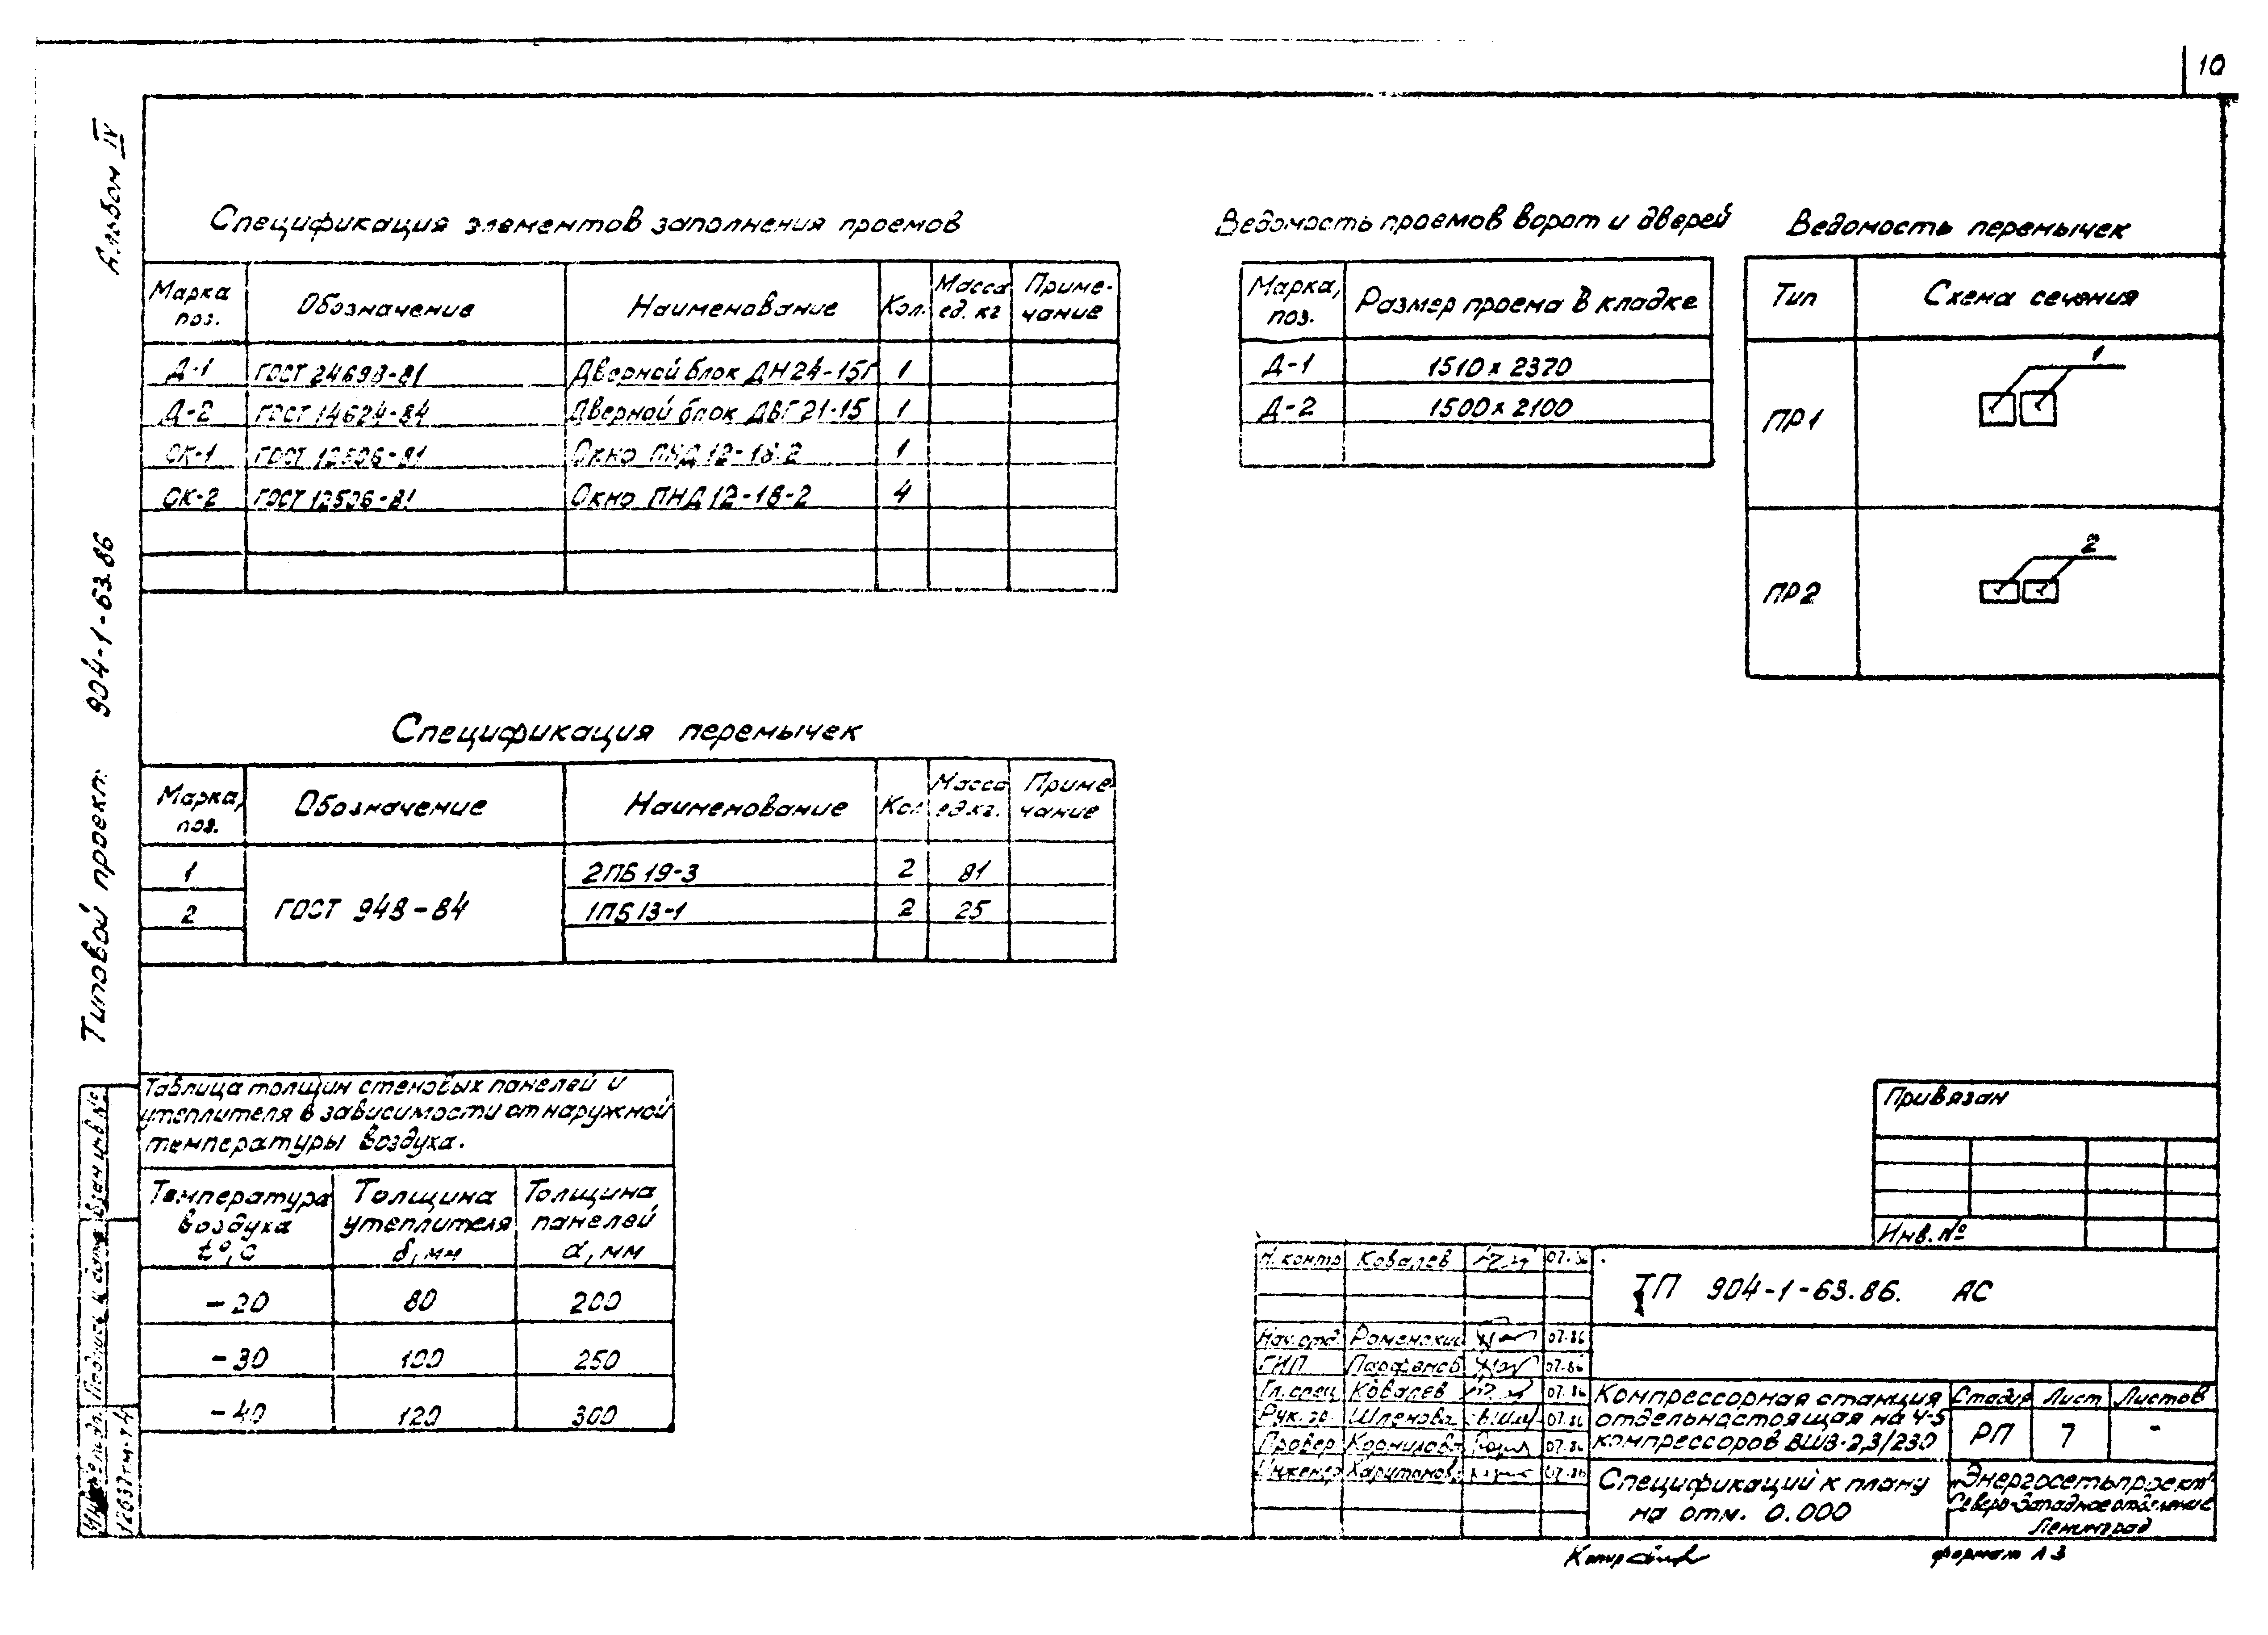 10
Альбом IV
Типовой проект 904-1-63.86
Спецификация элементов заполнения проемов
Марка поз. Обозначение Наименование Кол. Масса ед. кг Приме-чание
Д-1 ГОСТ 24698-81 Дверной блок ДН24-15Г 1
Д-2 ГОСТ 14624-84 Дверной блок ДВГ21-15 1
ОК-1 ГОСТ 12506-81 Окно ПНД12-18.2 1
ОК-2 ГОСТ 12506-81 Окно ПНД12-18-2 4
Ведомость проемов ворот и дверей
Марка, поз. Размер проема в кладке
Д-1 1510 х 2370
Д-2 1500 х 2100
Ведомость перемычек
Тип Схема сечения
ПР1 1
ПР2 2
Спецификация перемычек
Марка, поз. Обозначение Наименование Кол Масса ед.кг. Приме-чание
1 ГОСТ 948-84 2ПБ19-3 2 81
2 1ПБ13-1 2 25
Таблица толщин стеновых панелей и
утеплителя в зависимости от наружной
температуры воздуха.
Температура воздуха t°,С Толщина утеплителя δ, мм Толщина панелей α, мм
-20 80 200
-30 100 250
-40 120 300
Привязан
Инв. №
Н. контр Ковалев 07.86
Нач. отд. Роменский 07.86
ГИП Парфенов 07.86
Гл. спец Ковалев 07.86
Рук. гр. Шленова 07.86
Провер Корнилова 07.86
Инженер Харитонова 07.86
ТП 904-1-63.86. АС
Компрессорная станция
отдельностоящая на 4-5
компрессоров ВШВ-2,3/230
Стадия Лист Листов
РП 7 -
Спецификаций к плану
на отм. 0.000
"Энергосетьпроект"
Северо-Западное отделение
Ленинград
Взам инв №
Подпись и дата
Инв № подл.
12637тм-т4
Копир
формат А3